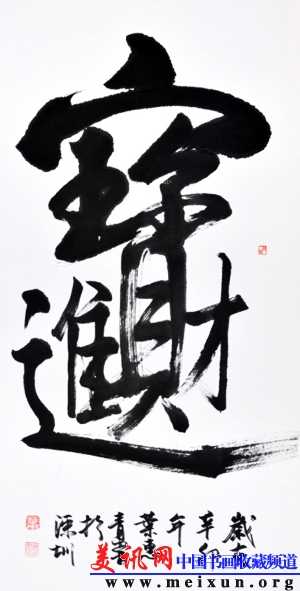 招財進寶
歲在
辛卯
年
葉惠
青書
於
深圳
美讯网 中国书画收藏频道
www.meixun.org